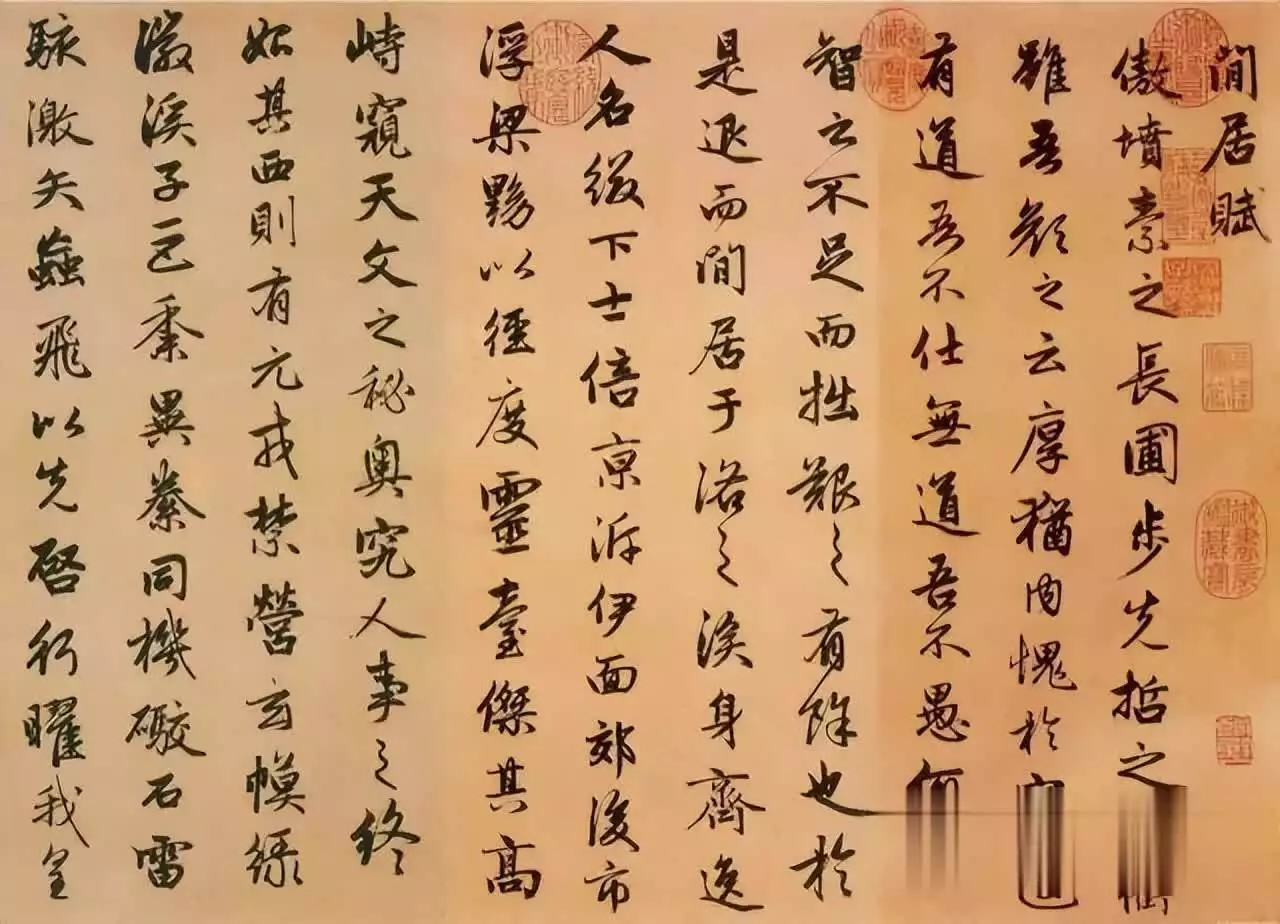 閒居賦
傲墳素之長圃步先哲之
雖吾顏之云厚猶內愧於
有道吾不仕無道吾不愚何
智之不足而拙艱之有餘也於
是退而閒居于洛之涘身齊逸
人名綴下士倍京泝伊面郊後市
浮梁黝以徑度靈臺傑其高
峙窺天文之秘奧究人事之終
始其西則有元戎禁營玄幙綠
徽溪子巨黍異絭同機礮石雷
駭激矢蝱飛以先啓行曜我皇